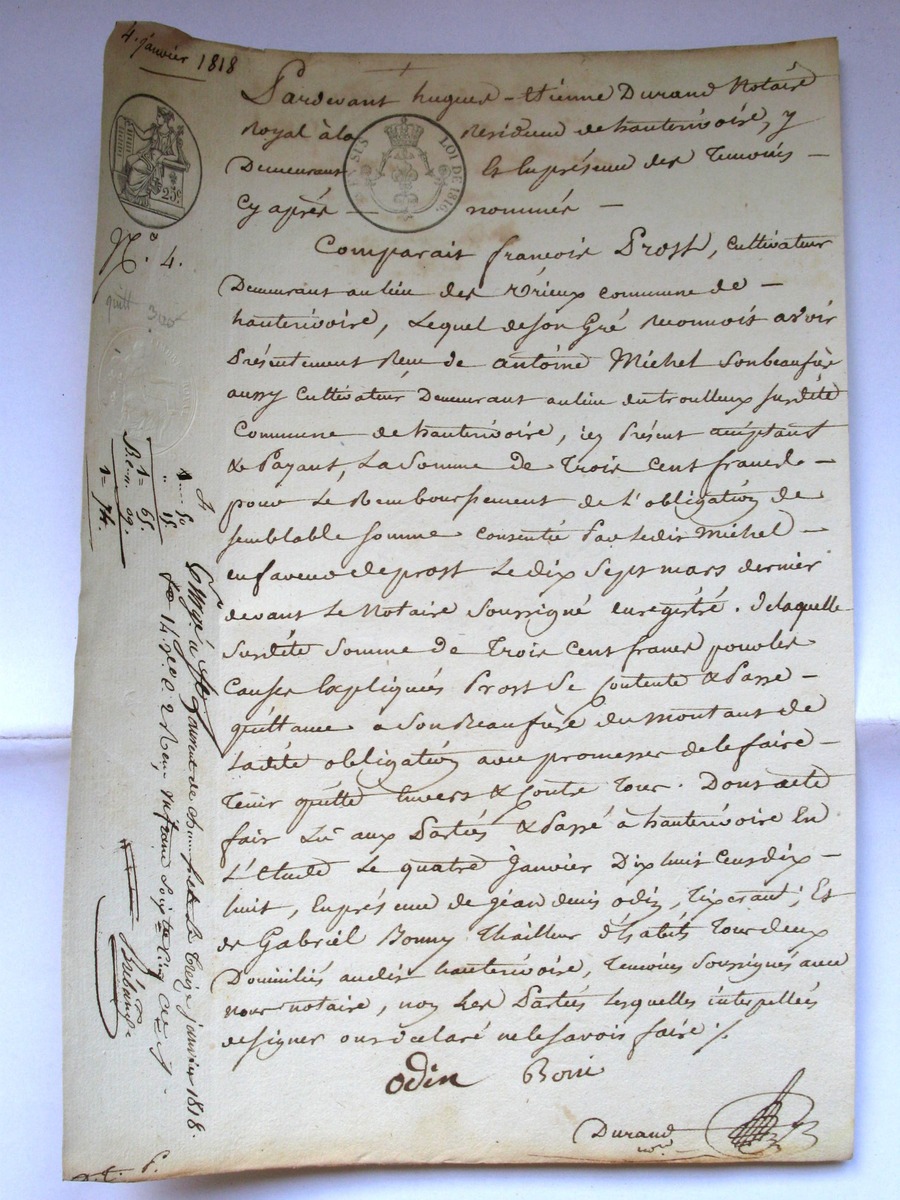 4. janvier 1818
Pardevant hugues-Etienne Durand Notaire
Royal à la Residence de hauterivoire, y
Demeurant Et Enprésence des Temoins
Cy après nommés
LOI DE 1816.
25c.
N.° 4.
quitt 300
Comparait françois Prost, cultivateur
Demeurant au lieu des Vrieux commune de
hauterivoire, Lequel de son Gré Reconnois avoir
Présentement Reçu de antoine Michel sonbeaufrere
aussy cultivateur Demeurant aulieu dutroulleux susdite
Commune de hauterivoire, icy Présent acceptant
& Payant, La Somme de Trois cent francs
pour Le Remboursement de L'obligation de
semblable somme consentie Par ledit Michel
enfaveur de prost Le dix Sept mars dernier
devant Le Notaire Soussigné enregistré. delaquelle
Susdite Somme de Trois Cent francs pour les
Causes Expliquées Prost Se Contente & Passe
quittance a Son Beaufrère du montant de
Ladite obligation avec promesse de le faire
Tenir quitte Envers & Contre Tous. Dont acte
fait Lu aux Parties & Passé à hauterivoire En
L'Etude Le quatre Janvier Dix huit Cent dix
huit, Enprésence de jean denis odin, Tixerant; Et
de Gabriel Bonny Thailleur d'habits Tous deux
Domiciliés audit hauterivoire, Temoins Soussignés avec
nous notaire, non Les Parties lesquelles interpellées
designer ont déclaré nelesavoir faire ./.
odin Boni
Durand
nre
1= 65.
1= 74.
Enrgé à St Laurent de chamousset Le Treize janvier 1818.